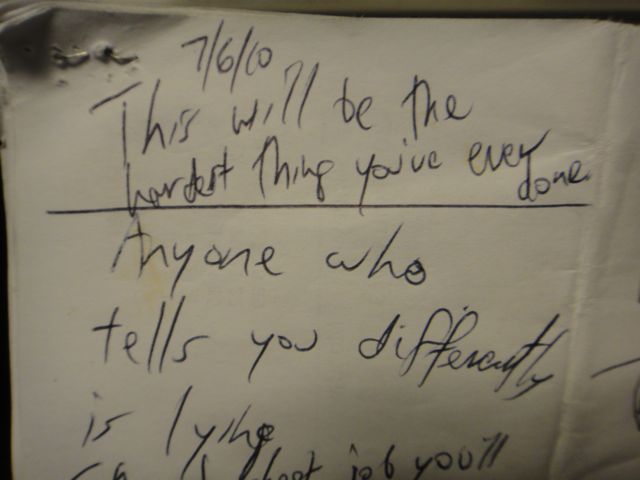 7/6/10
This will be the
hardest thing you've ever
done
Anyone who
tells you differently
is lying
job you'll